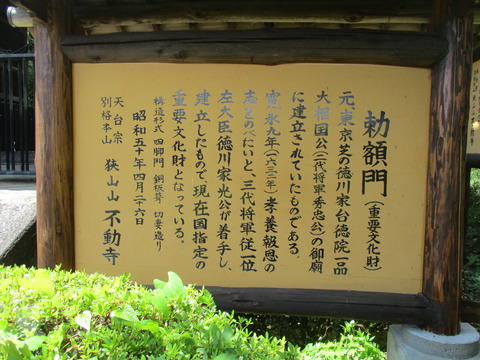 勅額門(重要文化財)
元、東京芝の徳川家台徳院一品
大相国公(二代将軍秀忠公)の御廟
に建立されていたものである。
寛永九年(一六三二年)孝養報恩の
志をのべたいと、三代将軍従一位、
左大臣徳川家光公が着手し、
建立したもので、現在国指定の
重要文化財となっている。
構造形式 四脚門 銅板葺 切妻造り
昭和五十年四月二十六日
天台宗
別格本山 狭山山 不動寺